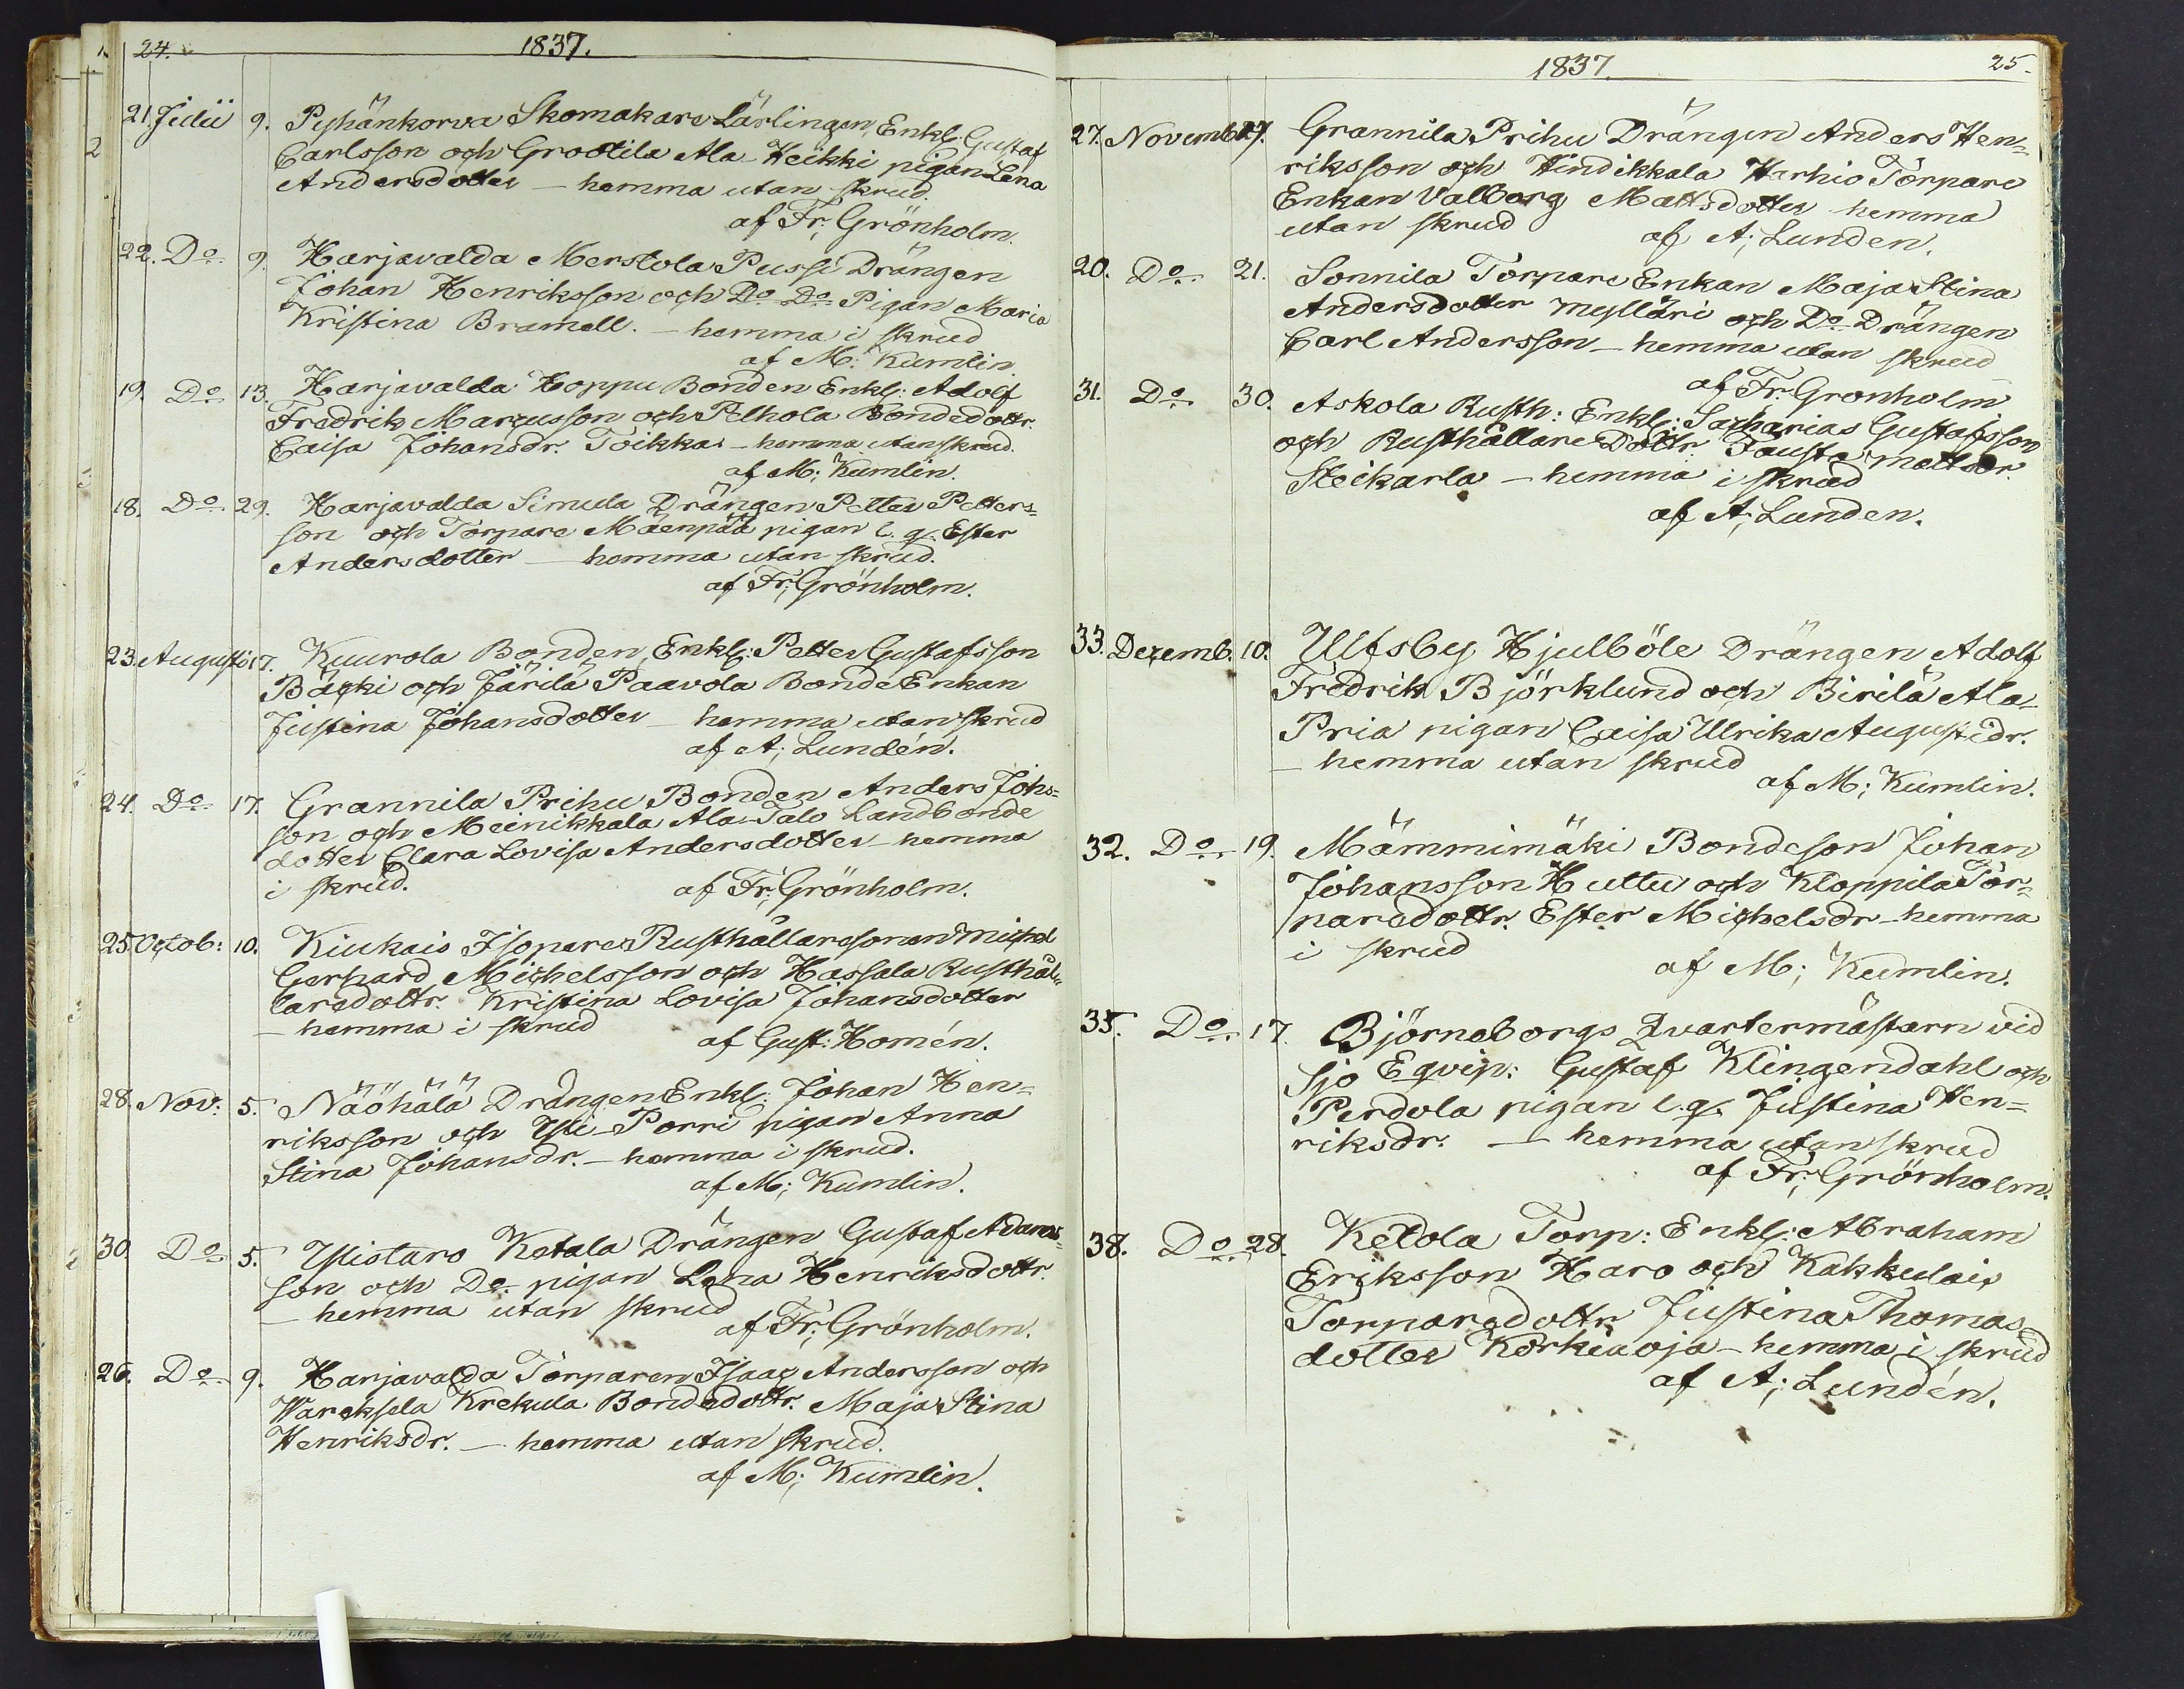 24.
1837.
21. Julii 9. Pyhänkorva Skomakare Lärlingen, Enkl: Gustaf
Carlsson och Grootila Ala-Heikki pigan Lena
Andersdotter — hemma utan skrud.
af Fr; Grönholm.
22. Do 9. Harjavalda Merstola Pussi Drängen
Johan Henriksson och Do Do Pigan Maria
Kristina Bramell. — hemma i skrud
af M: Kumlin.
19. Do 13. Harjavalda Hoppu Bonden Enkl: Adolf
Fredrik Marcusson och Pelhola Bondedottr.
Caisa Johansdr. Toikka — hemma utan skrud.
af M; Kumlin.
18. Do 29. Harjavalda Simula Drängen Petter Petters=
son och Torpare Mäenpää pigan l. q. Ester
Andersdotter — hemma utan skrud.
af Fr; Grönholm.
23. Augusti 17. Kuurola Bonden, Enkl: Petter Gustafsson
Bäcki och Järilä Paavola Bonde Enkan
Justina Johansdotter — hemma utan skrud
af A; Lundén.
24. Do 17. Grannila Prihu Bonden Anders Johs=
son och Meinikkala Ala-Talo Landbonde
dotter Clara Lovisa Andersdotter — hemma
i skrud. af Fr; Grönholm.
25. Octob: 10. Kiukais Isopere Rusthållaresonen Michel
Gerhard Michelsson och Hassala Rusthål=
laredottr. Kristina Lovisa Johansdotter
— hemma i skrud af Gust: Homén.
28. Nov: 5. Näöhälä Drängen Enkl: Johan Hen=
riksson och Yli-Porri pigan Anna
Stina Johansdr. — hemma i skrud.
af M; Kumlin.
30. Do 5. Ylistaro Ketala Drängen Gustaf Adams=
son och Do pigan Lena Henriksdottr.
— hemma utan skrud
af Fr; Grönholm.
26. Do 9. Harjavalda Torparen Isaac Andersson och
Wareksela Krekula Bondedottr. Maja Stina
Henriksdr. — hemma utan skrud.
af M; Kumlin.
1837.
25.
27. Novemb. 19. Grannila Prihu Drängen Anders Hen=
riksson och Hindikkala Harhio Torpare
Enkan Valborg Mattsdotter hemma
utan skrud af A; Lunden.
20. Do 21. Sonnila Torpare Enkan Maja Stina
Andersdotter Mylläri och Do Drängen
Carl Andersson — hemma utan skrud
af Fr: Gronholm
31. Do 30. Askola Rusth: Enkl: Sacharias Gustafsson
och Rusthållare Dottr. Fausta Mattsdr.
Steikarla — hemma i skrud
af A; Lunden.
33. Dezemb. 10. Ulfsby Hjulböle Drängen Adolf
Fredrik Björklund och Birilä Ala-
Pria pigan Caisa Ulrika Augustidr.
— hemma utan skrud
af M; Kumlin.
32. Do 19. Mämmimäki Bondeson Johan
Johansson Huttu och Kloppila Tor=
paredottr. Ester Michelsdr hemma
i skrud
af M; Kumlin.
35. Do 17. Björneborgs Qvartermästarn vid
Sjo Eqvip: Gustaf Klingendahl och
Perdola pigan l. q. Justina Hen=
riksdr. — hemma utan skrud
af Fr; Grönholm.
38. Do 28. Keldola Torp: Enkl: Abraham
Eriksson Haro och Kakkulais
Torparedottr Justina Thomas=
dotter Korkiaoja — hemma i skrud
af A; Lundén.